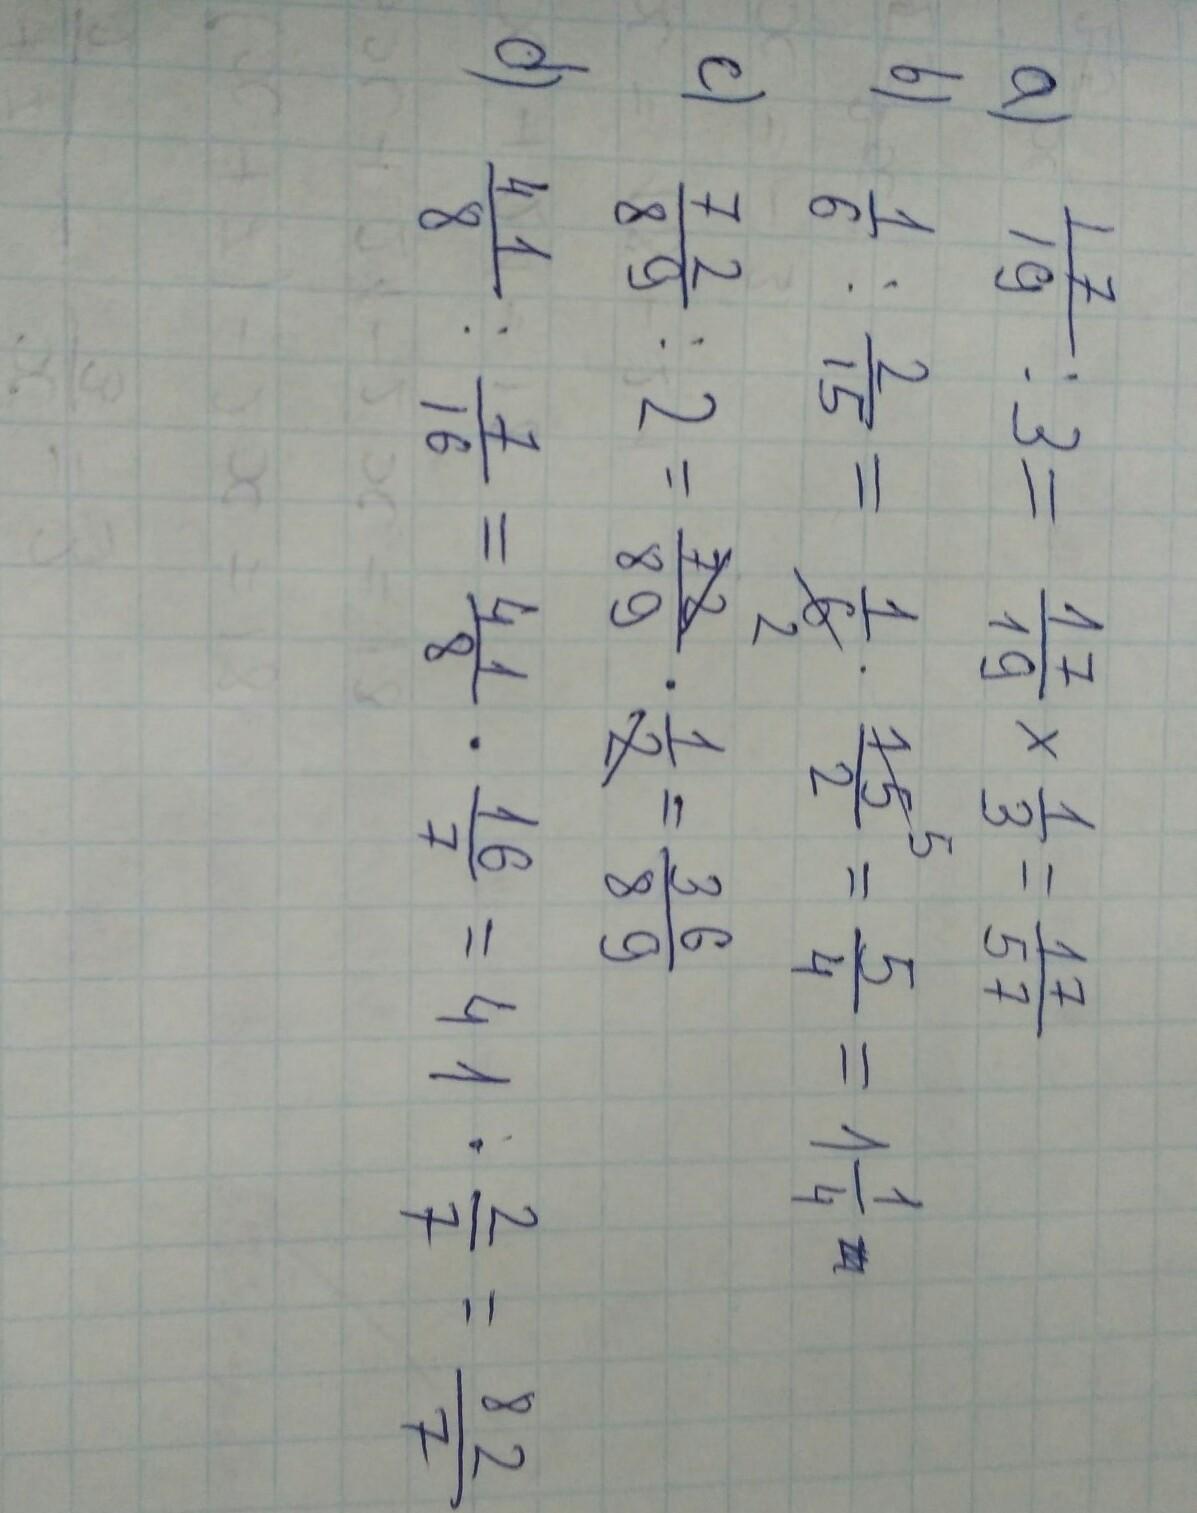 a) 17/19 : 3 = 17/19 × 1/3 = 17/57
b) 1/6 : 2/15 = 1/6 2 · 15/2 5 = 5/4 = 1 1/4
c) 72/89 : 2 = 72/89 · 1/2 = 36/89
d) 41/8 : 7/16 = 41/8 · 16/7 = 41 · 2/7 = 82/7